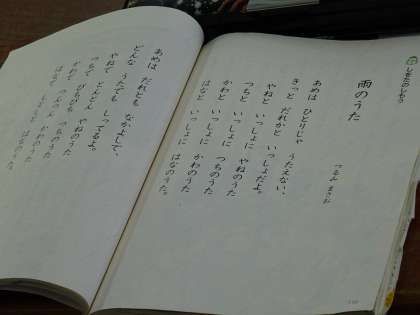 雨のうた
つるみ まさお
あめは ひとりじゃ うたえない、
きっと だれかと いっしょだよ。
やねと いっしょに やねのうた
つちと いっしょに つちのうた
かわと いっしょに かわのうた
はなと いっしょに はなのうた。
あめは だれとも なかよしで、
どんな うたでも しってるよ。
やねで とんとん やねのうた
つちで ぴちぴち つちのうた
かわで つんつん かわのうた
はなで しとしと はなのうた